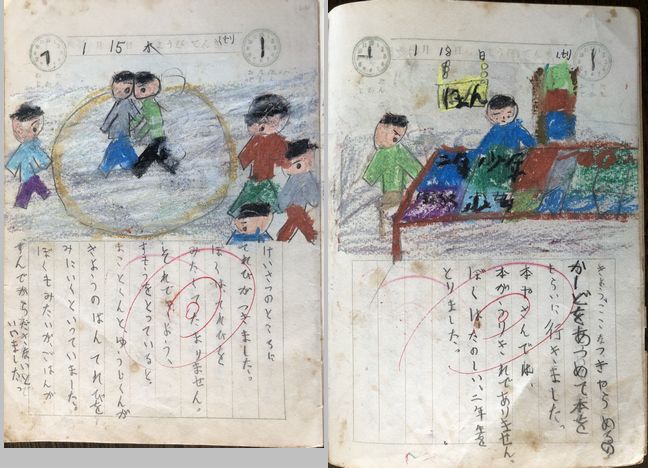 1 15 水
けいさつのところに
てれびがつきました。
ぼくはてれびを
みたくてたまりません。
それできょう、
すもうをとっていると、
まことくんとゆうじくんが
きょうのばんてれびを
みにいくといっていました。
ぼくもみたいがごはんが
すんでからだ
いいました。
1 18 日
ほん
二年 少年
カードをあつめて本を
もらいに行きました。
本やさんでは、
本がうりきれでありません。
ぼくはたのしい二年生を
とりました。